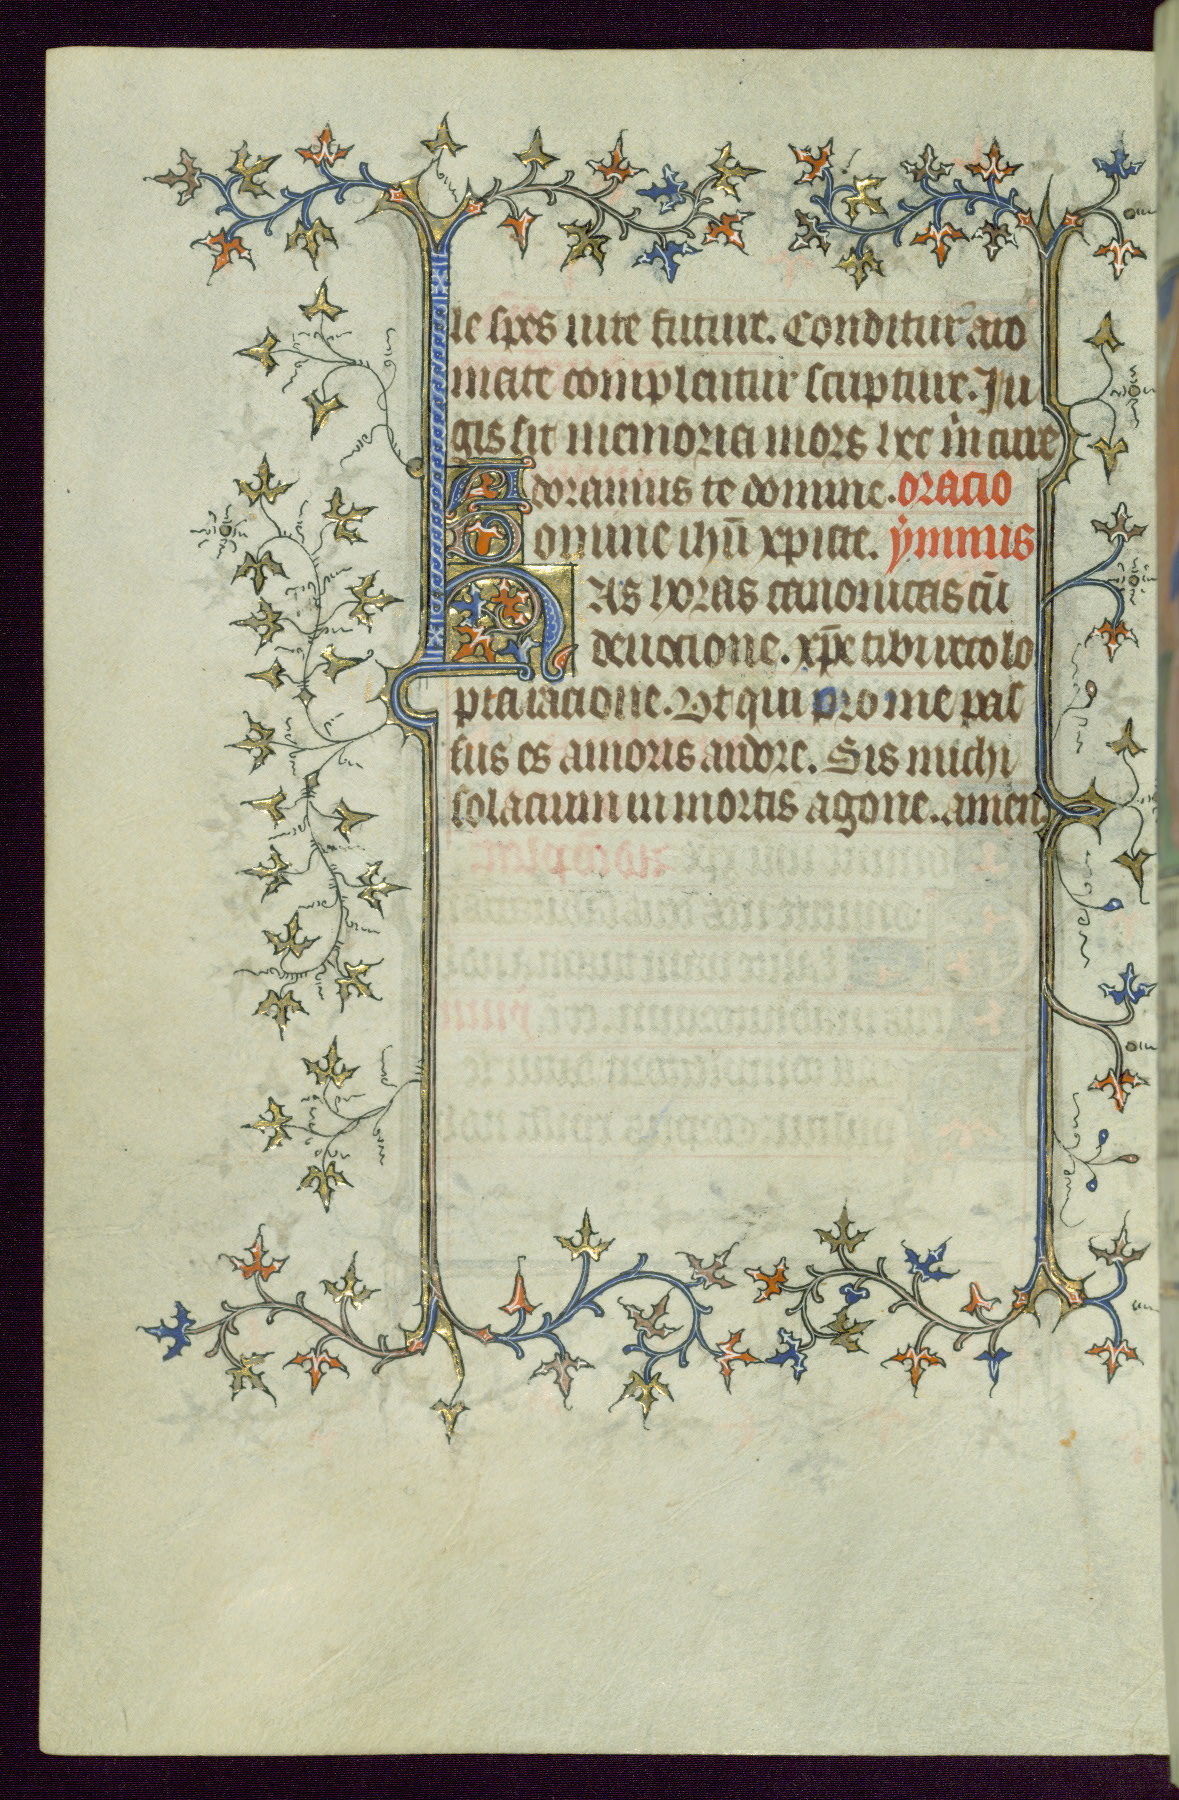 le spes uite future. Conditur aro
mate complentur scripture. Ju
gis sit memoria mors hec in cure
Adoramus te domine. oracio
Domine ihū xpicte. ẏmnus
HAs horas canonicas cū
deuocione. xp̄e tibi recolo
pia racione. Vt qui pro me pas
sus es amoris ardore. Sis michi
solacium in mortis agone. amen.